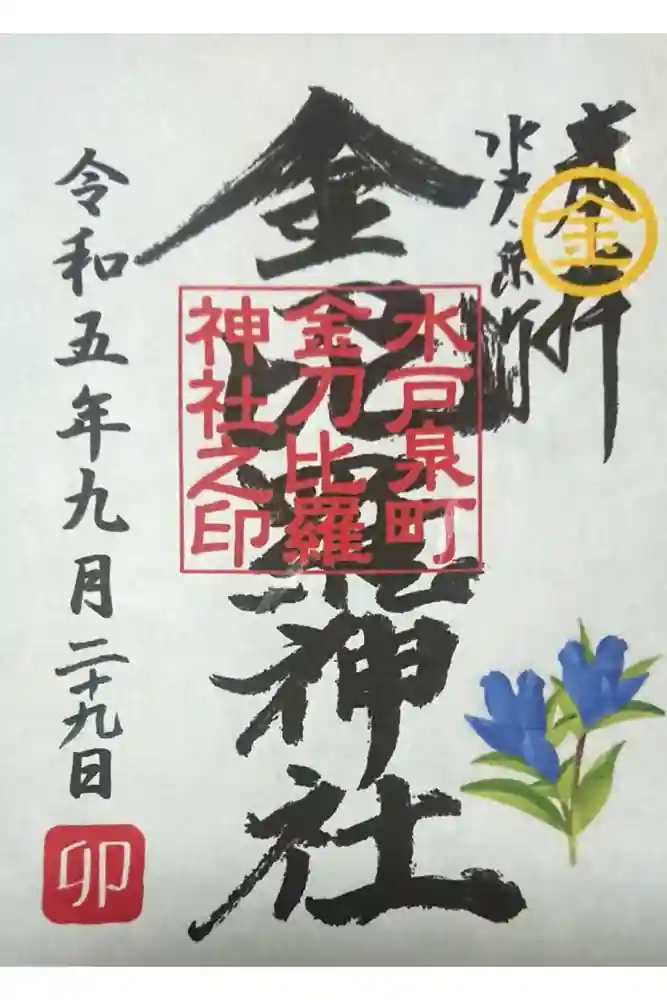 奉拝
金
水戸泉町
金刀比羅神社
水戸泉町
金刀比羅
神社之印
令和五年九月二十九日
卯